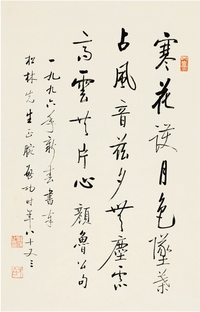 寒花護月色墜葉
占風音茲夕無塵慮
高雲共片心 顏魯公句
一九九六年新春書奉
松林先生正腕 啟功時年八十又三